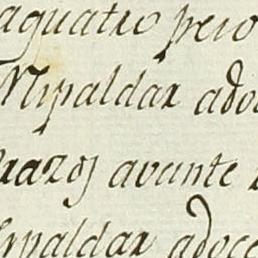 aguatro pero
Mipaldar ado
razoj avante
Mipaldar adoce